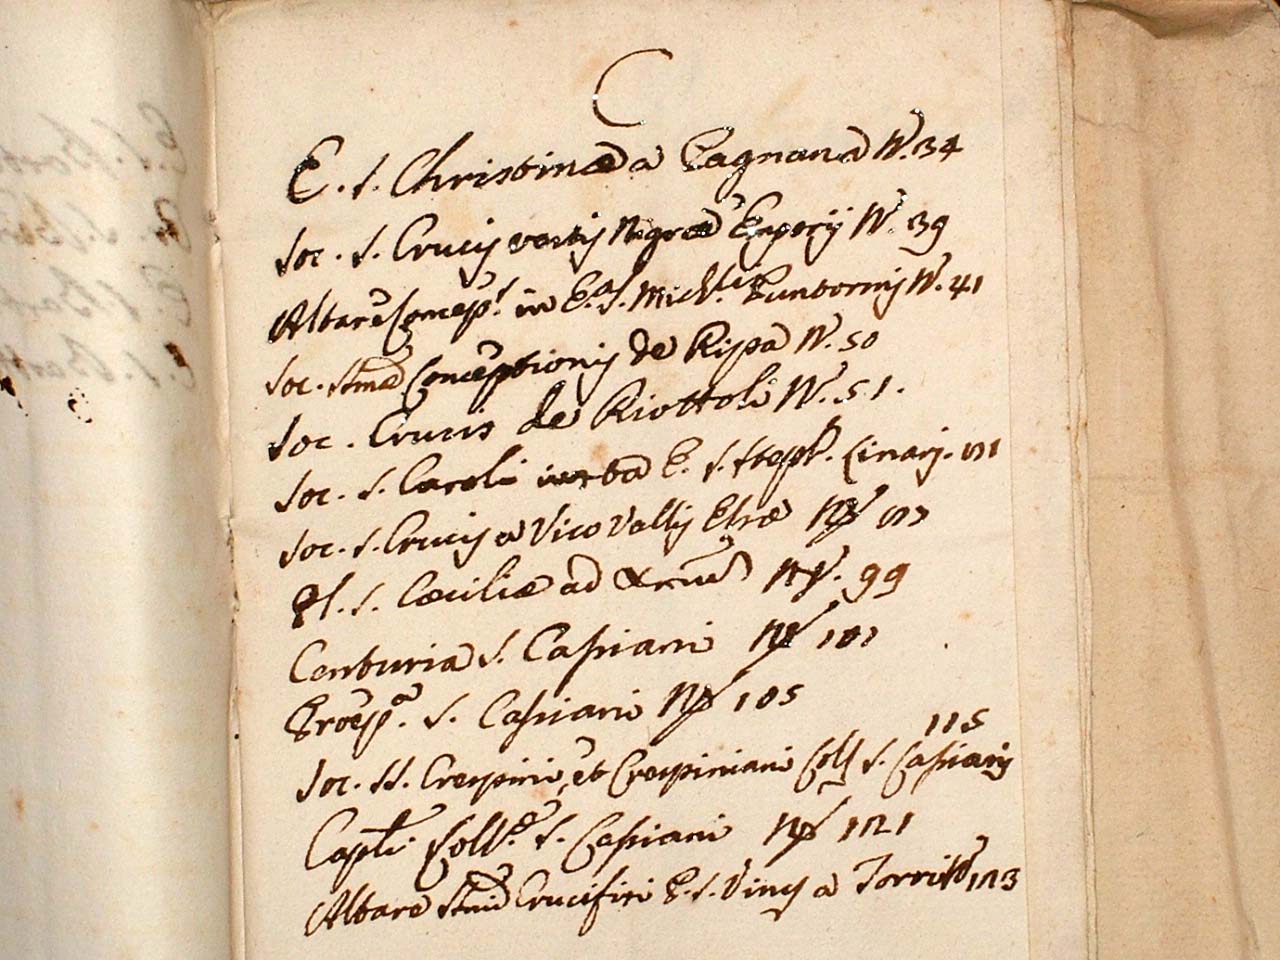 C
E. S. Christinæ a Pagnana N. 34
Soc. S. Crucis vestis Nigræ Emporij N. 39
Altare Concep.t in E.a S. Mich.lis Puntormij N. 41
Soc. Stmæ Conceptionis de Ripa N. 50
Soc. Crucis de Riottoli N. 51.
Soc. S. Caroli iuxta E. S. Steph.
Soc. S. Crucis a Vico Vallis Elsæ N.
Pl. S. Cæciliæ ad N. 99
Centuria S. Cassiani N. 101
S. Cassiani N. 105
Soc. SS. Crespini, et Crespiniani Coll S. Cassiani 115
Capli Coll.e S. Cassiani N. 121
Altare Stmi Crucifixi P. S. a 123